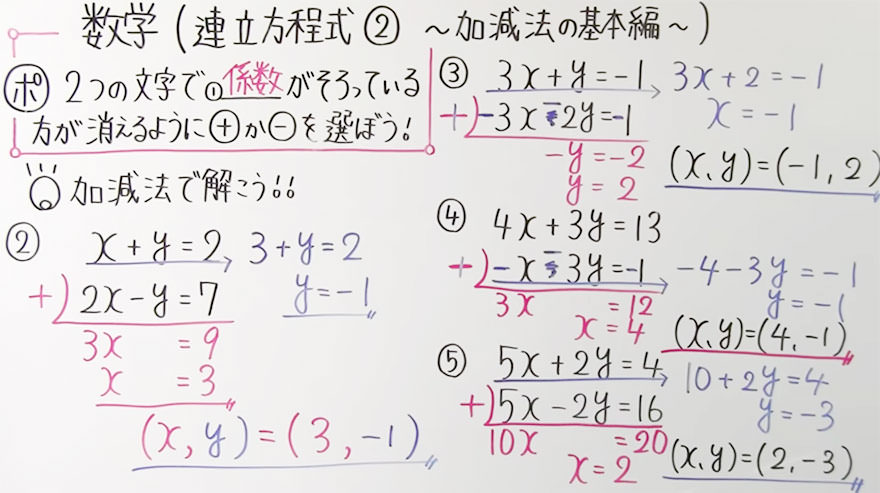 数学(連立方程式② ～加減法の基本編～)
ポ 2つの文字で①係数がそろっている
方が消えるように⊕か⊖を選ぼう!
加減法で解こう!!
② x+y=2 3+y=2
+)2x-y=7 y=-1
3x =9
x =3
(x,y)=(3,-1)
③ 3x+y=-1 3x+2=-1
+)-3x-2y=-1 x=-1
-y=-2 (x,y)=(-1,2)
y=2
④ 4x+3y=13
+)-x-3y=-1 -4-3y=-1
3x =12 y=-1
x=4 (x,y)=(4,-1)
⑤ 5x+2y=4 10+2y=4
+)5x-2y=16 y=-3
10x =20
x=2 (x,y)=(2,-3)